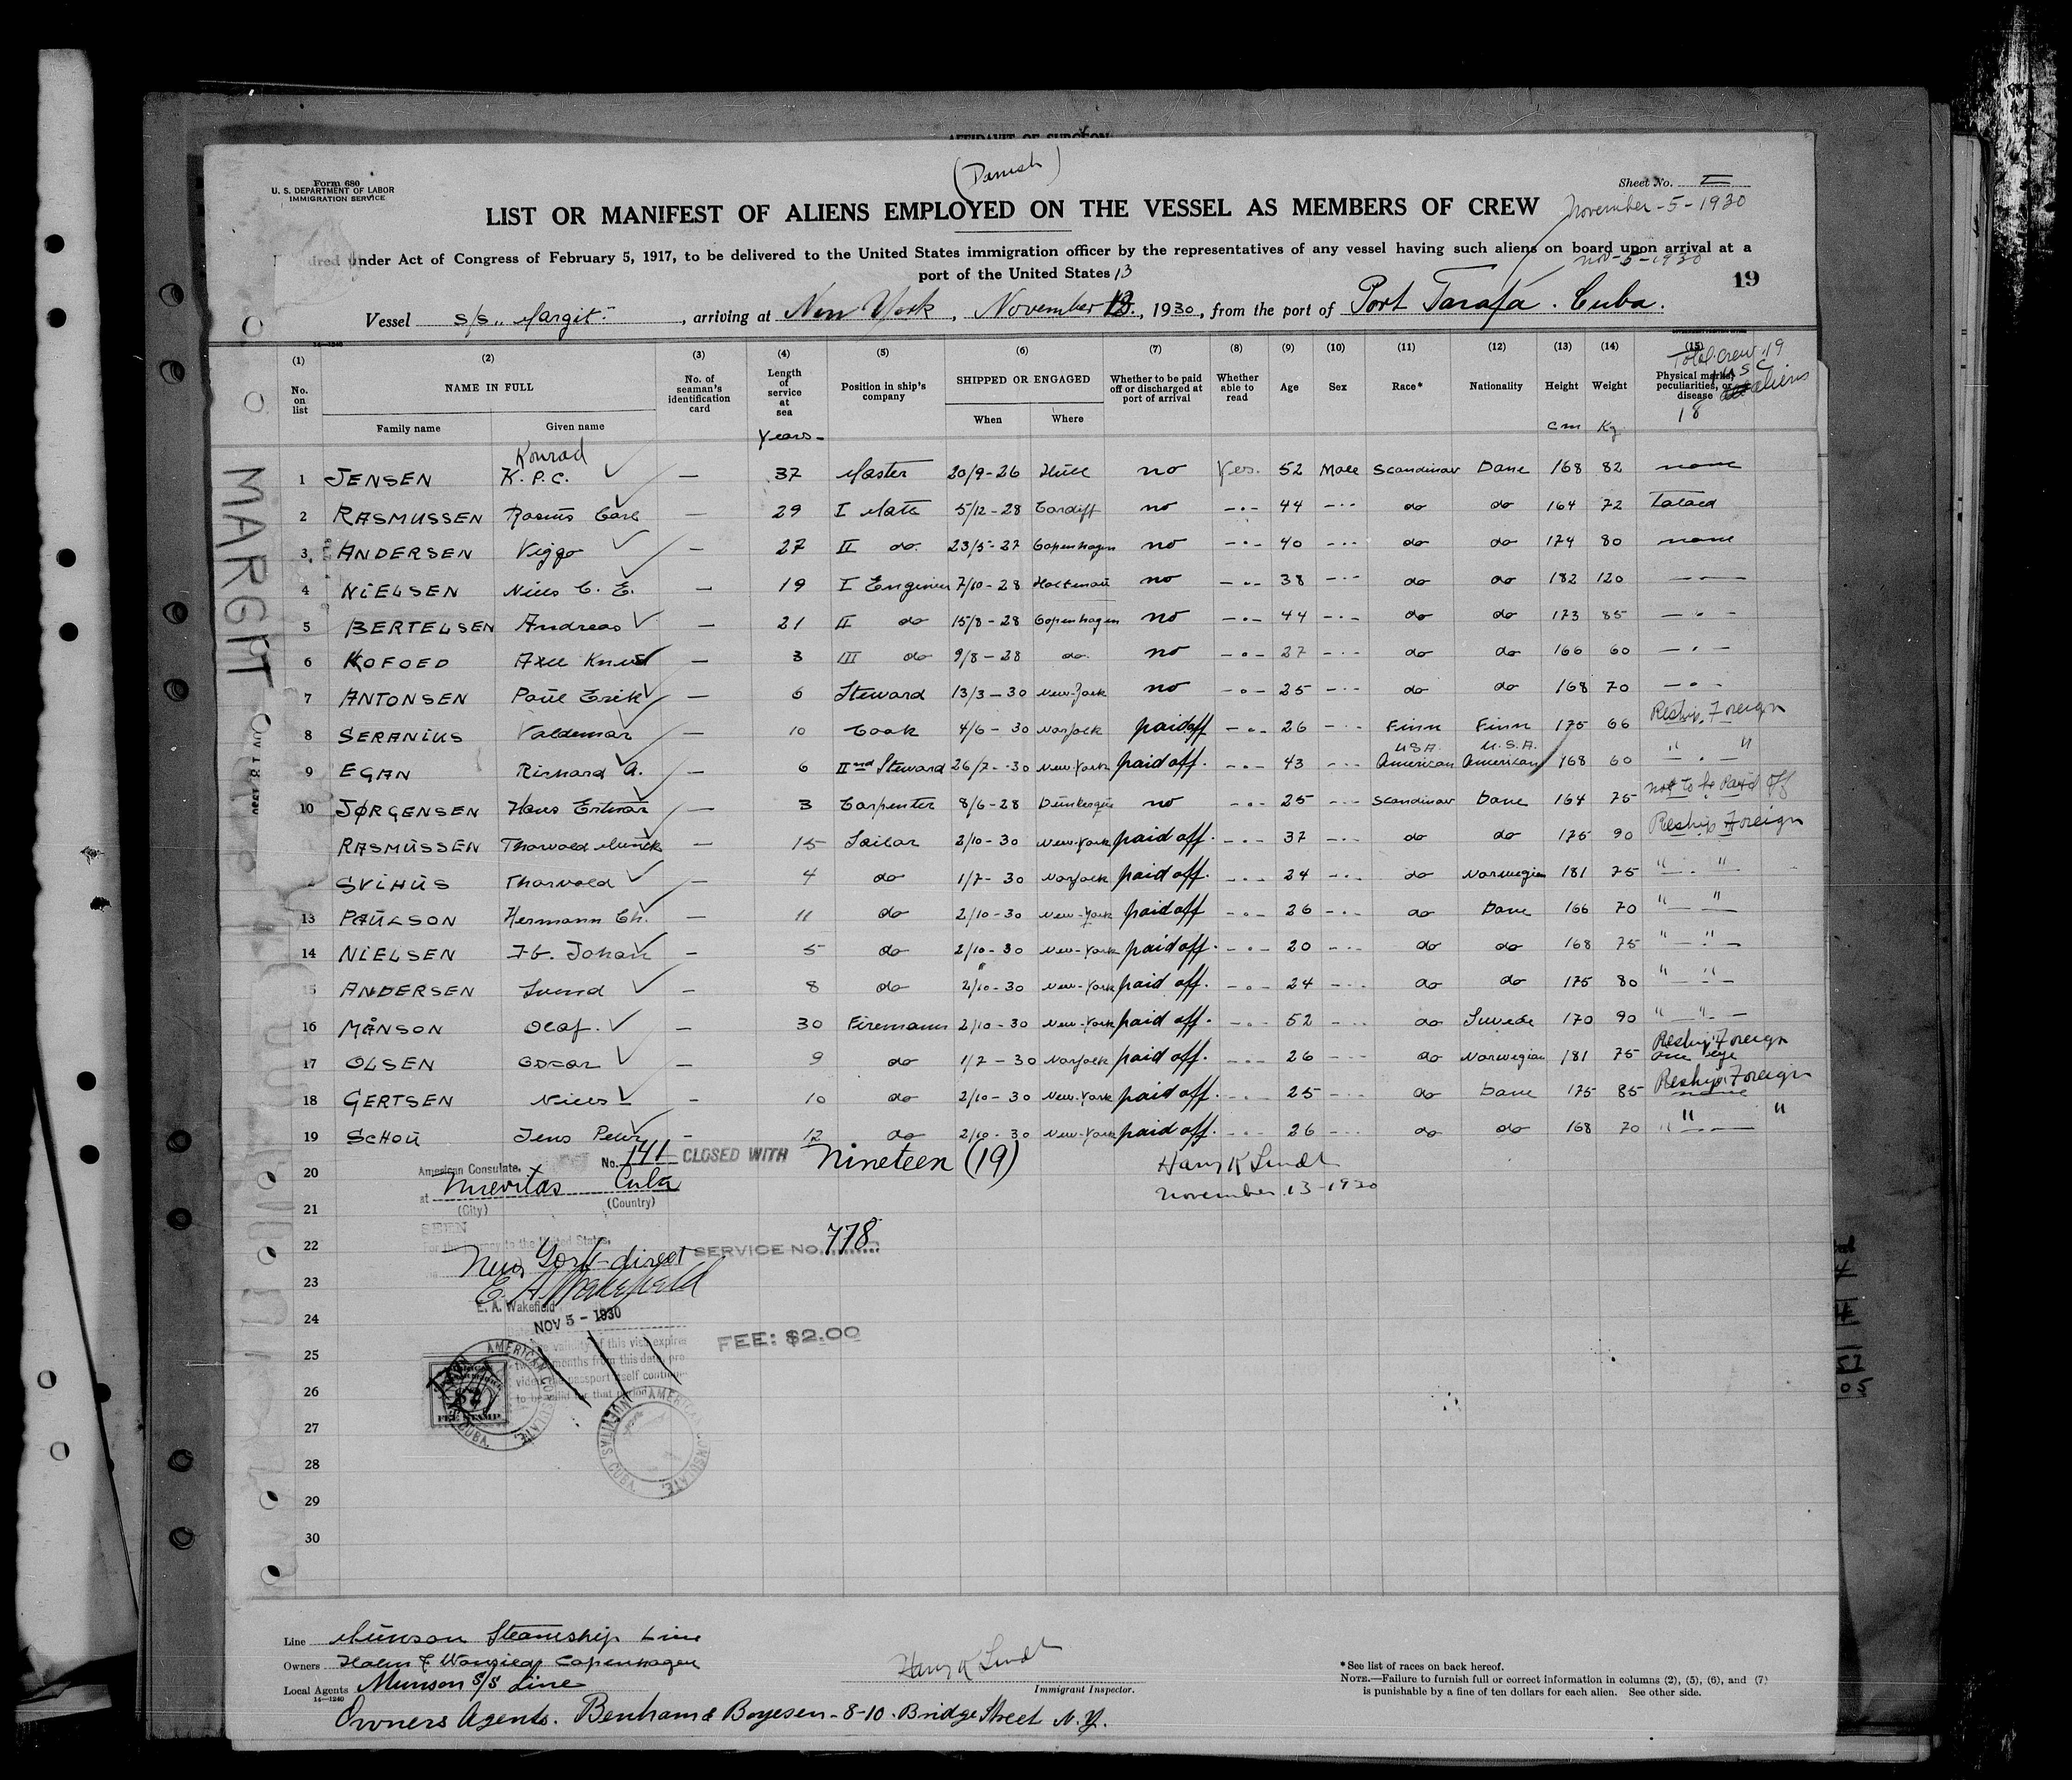 (Danish)
Form 680
U. S. DEPARTMENT OF LABOR
IMMIGRATION SERVICE
Sheet No. I
LIST OR MANIFEST OF ALIENS EMPLOYED ON THE VESSEL AS MEMBERS OF CREW
November-5-1930
under Act of Congress of February 5, 1917, to be delivered to the United States immigration officer by the representatives of any vessel having such aliens on board upon arrival at a
port of the United States
Nov-5-1930
13
19
Vessel S/S „Margit", arriving at New York, November 13, 1930, from the port of Port Tarafa. Cuba.
(1) (2) (3) (4) (5) (6) (7) (8) (9) (10) (11) (12) (13) (14) (15)
No. on list NAME IN FULL No. of seaman's identification card Length of service at sea Position in ship's company SHIPPED OR ENGAGED Whether to be paid off or discharged at port of arrival Whether able to read Age Sex Race* Nationality Height Weight Physical marks, peculiarities, or disease
Total Crew 19
USC
aliens
18
Family name Given name When Where
Years- cm Kg
Konrad
1 JENSEN K. P. C. — 37 Master 20/9-26 Hull no Yes. 52 Male Scandinav Dane 168 82 none
2 RASMUSSEN Rasmus Carl — 29 I Mate 5/12-28 Cardiff no 44 do do 164 72 tataed
3 ANDERSEN Viggo — 27 II do. 23/5-27 Copenhagen no 40 do do 174 80 none
4 NIELSEN Niels C. E. — 19 I Engineer 7/10-28 Holtenau no 38 do do 182 120
5 BERTELSEN Andreas — 21 II do 15/8-28 Copenhagen no 44 do do 173 85
6 KOFOED Axel Knud — 3 III do 9/8-28 do. no 27 do do 166 60
7 ANTONSEN Paul Erik — 6 Steward 13/3-30 New-York no 25 do do 168 70
8 SERANIUS Valdemar — 10 Cook 4/6-30 Norfolk paid off 26 Finn Finn 175 66 Reship. Foreign
USA. U.S.A.
9 EGAN Richard A. — 6 IInd Steward 26/7-30 New-York paid off. 43 American American 168 60 " "
10 JØRGENSEN Hans — 3 Carpenter 8/6-28 Dunkerque no 25 Scandinav Dane 164 75 not to be Paid Off
RASMUSSEN Thorvald Munck — 15 Sailor 2/10-30 New-York paid off. 37 do do 175 90 Reship Foreign
SVIHUS Thorvald — 4 do 1/7-30 Norfolk paid off. 24 do Norwegian 181 75 " "
13 PAULSON Hermann Ch. — 11 do 2/10-30 New-York paid off 26 do Dane 166 70 " "
14 NIELSEN Johan — 5 do 2/10-30 New-York paid off. 20 do do 168 75 " "
15 ANDERSEN Svend — 8 do 2/10-30 New-York paid off. 24 do do 175 80 " "
16 MÅNSON Olaf. — 30 Firemann 2/10-30 New-York paid off. 52 do Swede 170 90 " "
17 OLSEN Oscar — 9 do 1/7-30 Norfolk paid off. 26 do Norwegian 181 75 Reship Foreign
one eye
18 GERTSEN Niels — 10 do 2/10-30 New-York paid off. 25 do Dane 175 85 Reship Foreign
none
19 SCHOU Jens Peter — 12 do 2/10-30 New-York paid off. 26 do do 168 70 " "
20
American Consulate, No. 141 CLOSED WITH Nineteen (19)
Harry K Lindt
at Nuevitas Cuba
November 13-1930
(City) (Country)
21
SEEN
22
to the United States,
New York-direct
SERVICE NO. 778
23
E. A. Wakefield
E. A. Wakefield
24
NOV 5 - 1930
FEE: $2.00
validity of this visa expires
25
months from this date, provided
passport itself continues
26
to be valid for that period
AMERICAN CONSULATE
NUEVITAS, CUBA.
$2
FEE STAMP
AMERICAN CONSULATE,
NUEVITAS, CUBA.
27
28
29
30
MARGIT
Line Munson Steamship Line
Owners Copenhagen
Local Agents Munson S/S Line
14—1240
Harry K Lindt
Immigrant Inspector.
*See list of races on back hereof.
NOTE.—Failure to furnish full or correct information in columns (2), (5), (6), and (7)
is punishable by a fine of ten dollars for each alien. See other side.
Owners Agents. Benham & Boyesen-8-10. Bridge Street N.Y.